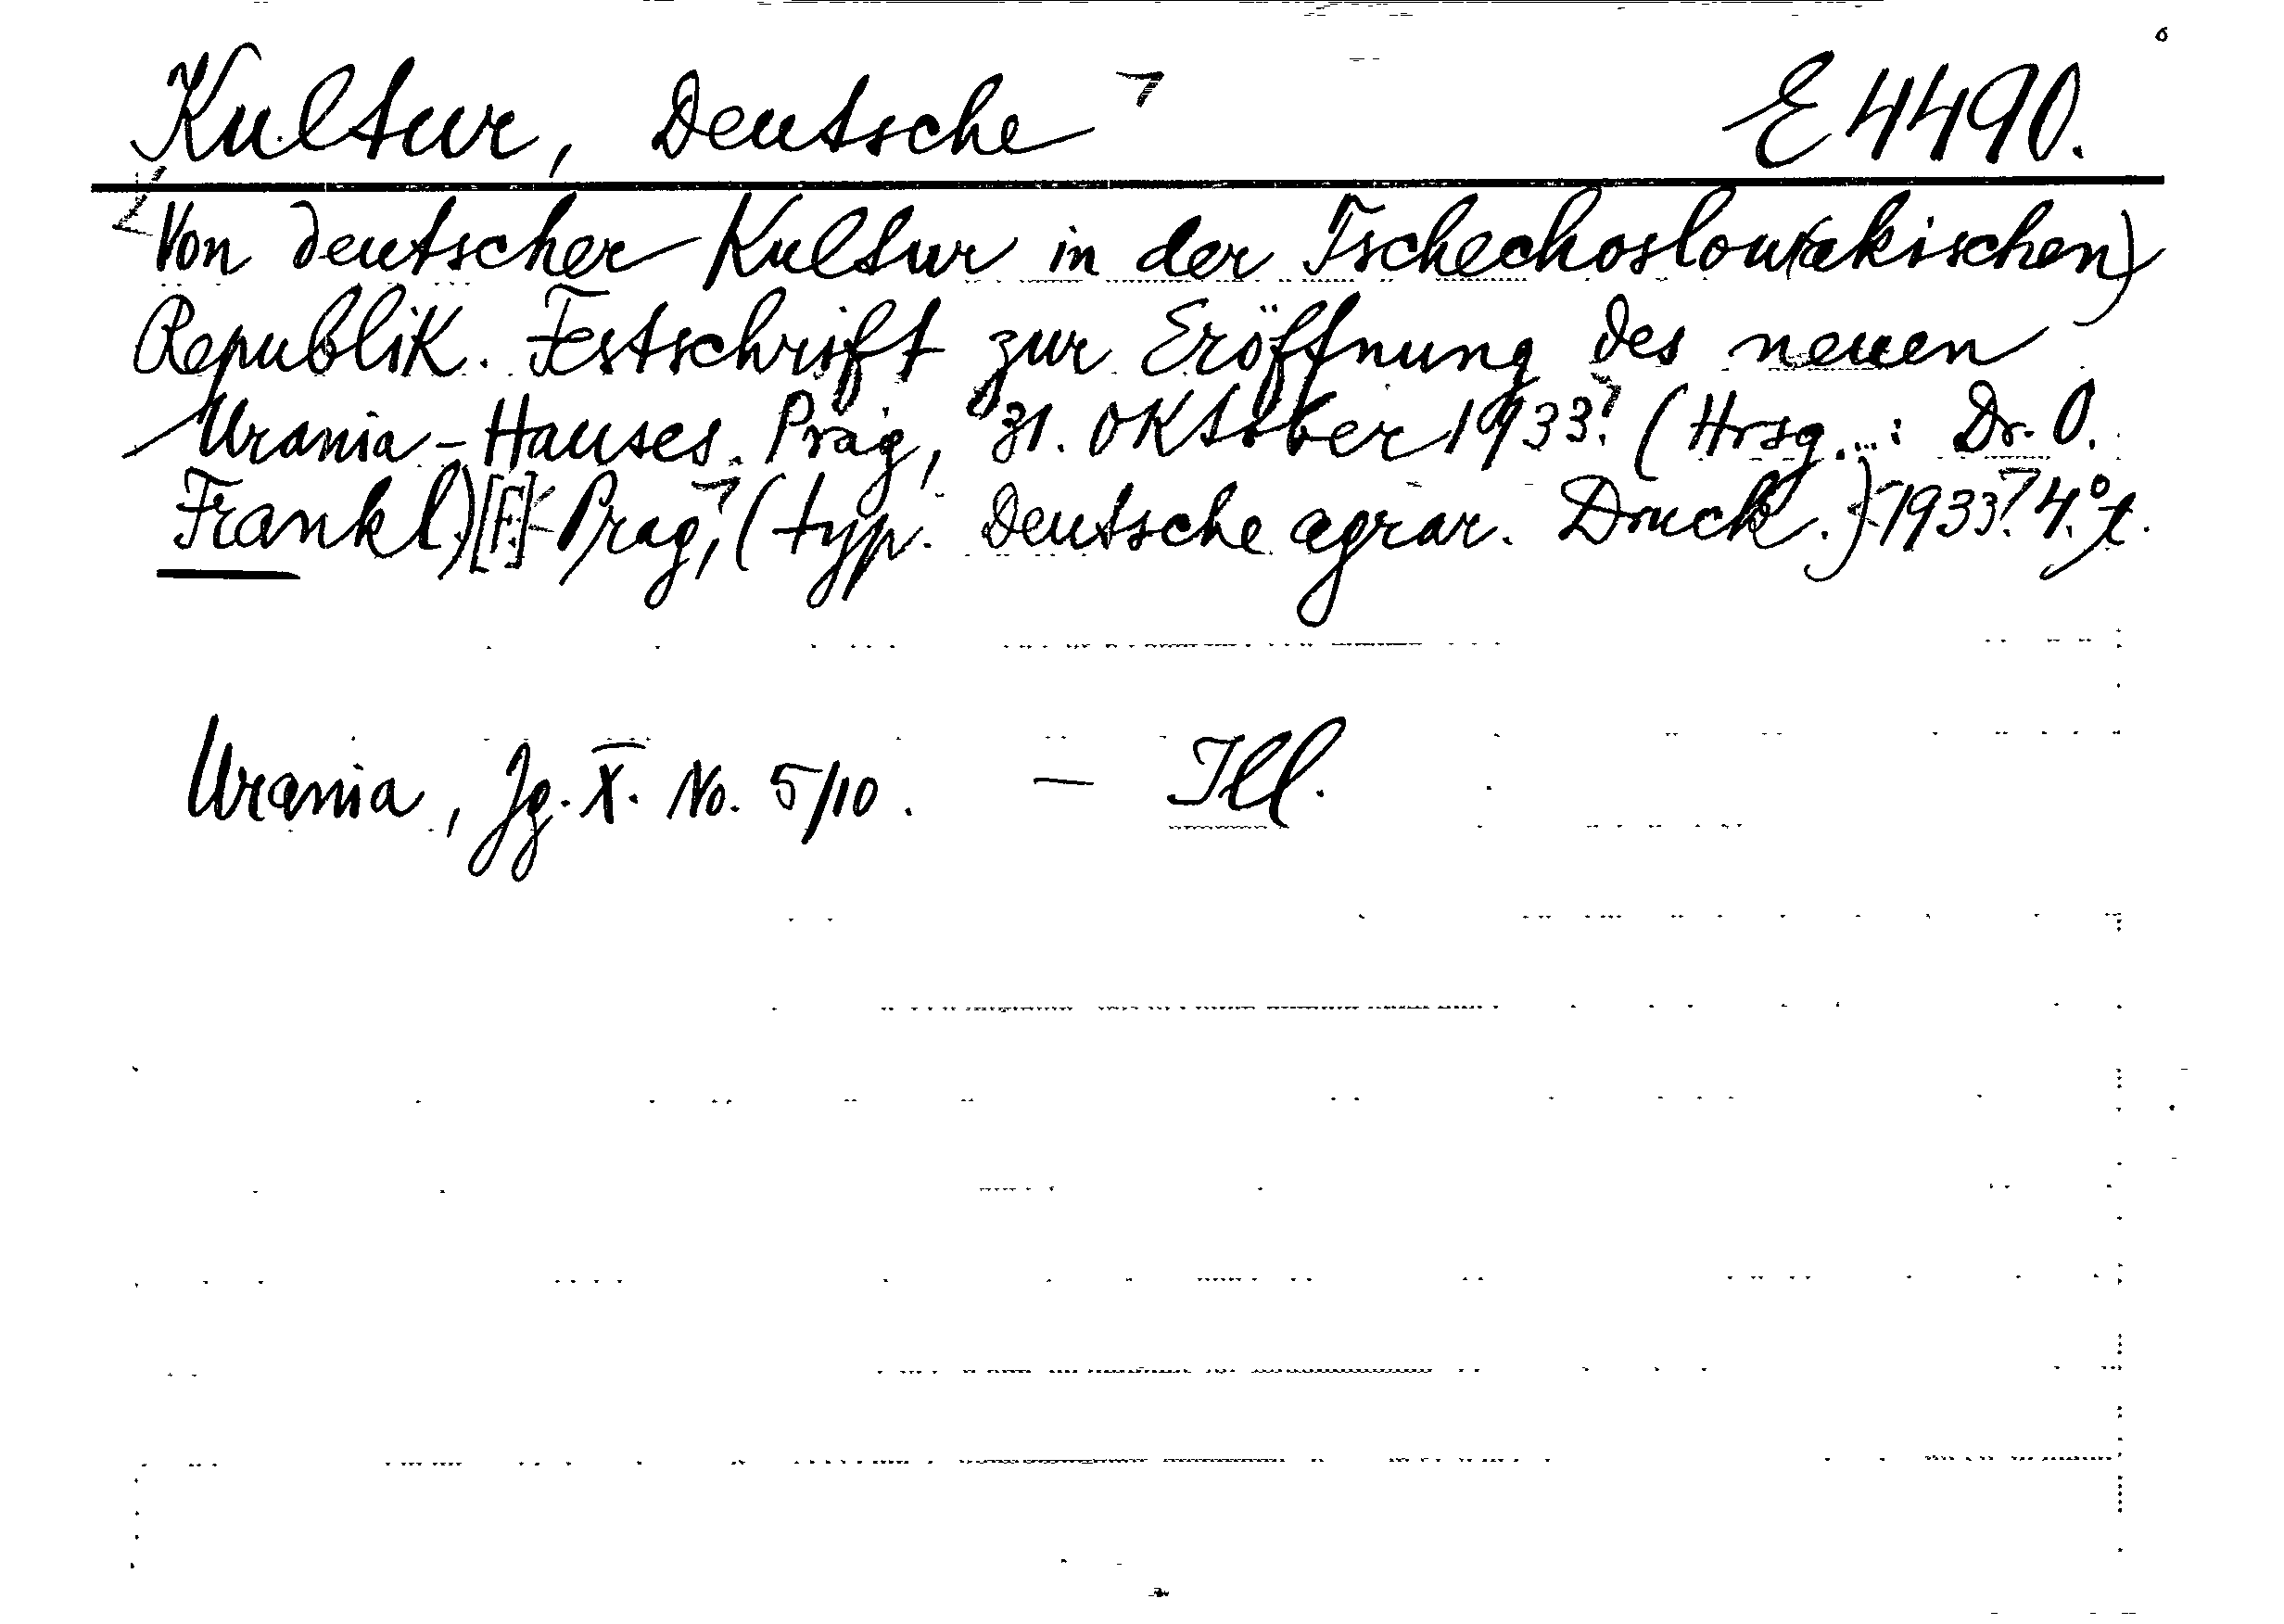 Kultur, Deutsche E 4490.
Von deutscher Kultur in der Tschechoslow(akischen)
Republik. Festschrift zur Eröffnung des neuen
Urania-Hauses. Prag, 31. Oktober 1933. (Hrsg...: Dr. O.
Frankl) [F.] Prag, (typ. Deutsche agrar. Druck.) 1933. 4.° t.
Urania, Jg. X. No. 5/10. — Ill.